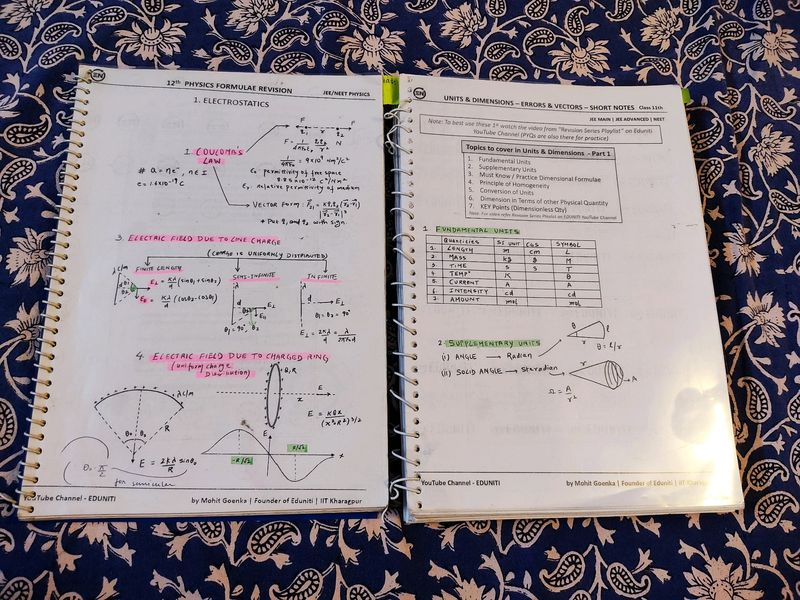 EN
12th PHYSICS FORMULAE REVISION
JEE/NEET PHYSICS
1. ELECTROSTATICS
1. COULOMB'S LAW
F = 1/4πε₀εᵣ q₁q₂/r²
1/4πε₀ = 9×10⁹ Nm²/C²
ε₀ permittivity of free space
8.85×10⁻¹² C²/Nm²
εᵣ relative permittivity of medium
# Q = ne⁻, n ∈ I
e = 1.6×10⁻¹⁹ C
VECTOR FORM:
+ Put q₁ and q₂ with sign.
3. ELECTRIC FIELD DUE TO LINE CHARGE
(CHARGE IS UNIFORMLY DISTRIBUTED)
λ C/m
FINITE LENGTH
E⊥ = Kλ/d (sinθ₁+sinθ₂)
E∥ = Kλ/d (cosθ₂-cosθ₁)
SEMI-INFINITE
θ₁=90°, θ₂
INFINITE
θ₁=θ₂=90°
E⊥ = 2Kλ/d = λ/2πε₀d
4. ELECTRIC FIELD DUE TO CHARGED RING
(Uniform charge Distribution)
λ C/m
R
E = 2Kλ sinθ₀/R
Q, R
x
E
E = KQx/(x²+R²)^3/2
-R/√2
R/√2
for semicircular
YouTube Channel - EDUNITI
by Mohit Goenka | Founder of Eduniti | IIT Kharagpur
EN
UNITS & DIMENSIONS – ERRORS & VECTORS – SHORT NOTES Class 11th
JEE MAIN | JEE ADVANCED | NEET
Note: To best use these 1st watch the video from "Revision Series Playlist" on Eduniti
YouTube Channel (PYQs are also there for practice)
Topics to cover in Units & Dimensions - Part 1
1. Fundamental Units
2. Supplementary Units
3. Must Know / Practice Dimensional Formulae
4. Principle of Homogeneity
5. Conversion of Units
6. Dimension in Terms of other Physical Quantity
7. KEY Points (Dimensionless Qty)
Note: For video refer Revision Series Playlist on EDUNITI YouTube Channel
1 FUNDAMENTAL UNITS
Quantities SI UNIT CGS SYMBOL
1. LENGTH m cm L
2. MASS kg g M
3. TIME s s T
4. TEMP° K θ
5. CURRENT A A
6. INTENSITY cd cd
7. AMOUNT mol mol
2. SUPPLEMENTARY UNITS
(i) ANGLE → Radian
θ l r
θ = l/r
(ii) SOLID ANGLE → Steradian
r A
Ω = A/r²
YouTube Channel - EDUNITI
by Mohit Goenka | Founder of Eduniti | IIT Kharagpur